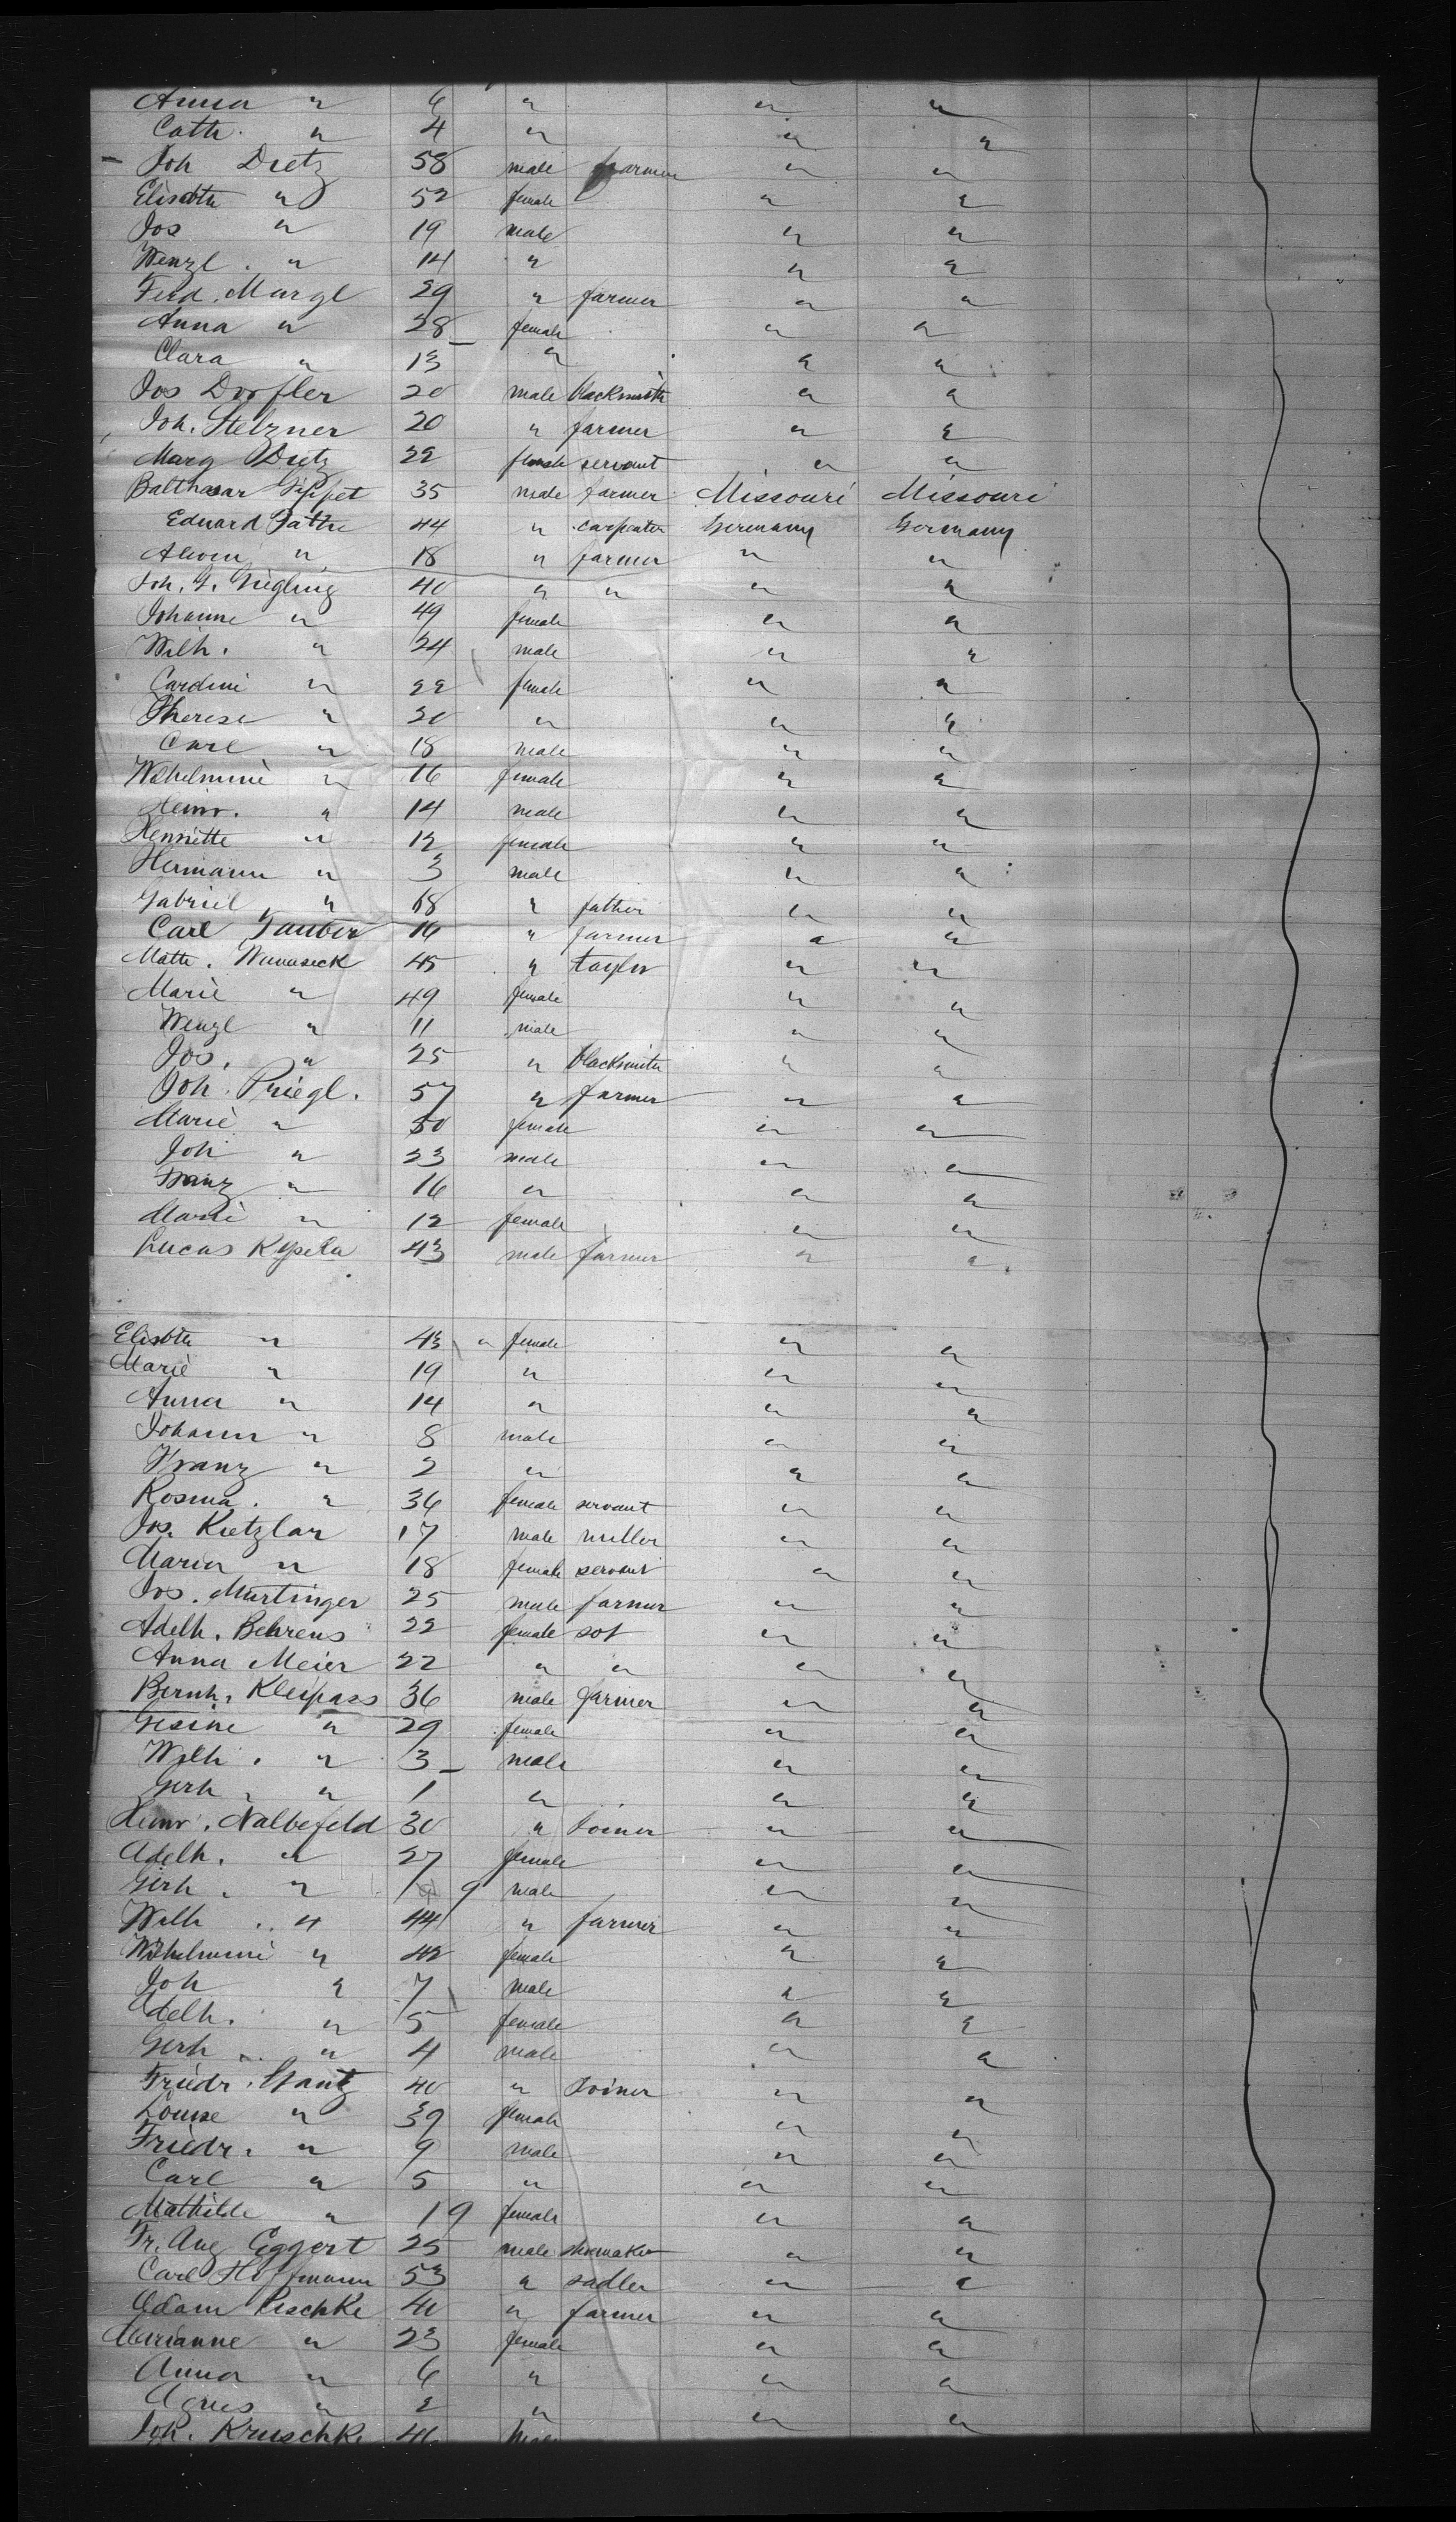 Anna " 6 " " "
Cath. " 4 " " "
Joh Dietz 58 male farmer " "
Elisabth " 52 female " "
Jos " 19 male " "
Wenzl. " 14 " " "
Ferd. Margl 29 " farmer " "
Anna " 28 female " "
Clara " 13 " " "
Jos Dorfler 20 male blacksmith " "
Joh. Stelzner 20 " farmer " "
Marg Dietz 22 female servant " "
Balthasar 35 male farmer Missouri Missouri
Eduard 44 " carpenter Germany Germany
" 18 " farmer " "
Joh. G. Giegling 40 " " " "
Johanne " 49 female " "
Wilh. " 24 male " "
Caroline " 22 female " "
Therese " 20 " " "
Carl " 18 male " "
Wilhelmine " 16 female " "
Heinr. " 14 male " "
Henriette " 12 female " "
Hermann " 3 male " "
Gabriel " 68 " father " "
Carl Tauber 16 " farmer " "
Math. 45 " taylor " "
Marie " 49 female " "
Wenzl " 11 male " "
Jos. " 25 " blacksmith " "
Joh. Priegl. 57 " farmer " "
Marie " 50 female " "
Joh " 23 male " "
Franz " 16 " " "
Marie " 12 female " "
Lucas Kypeta 43 male farmer " "
Elisbth " 43 " female " "
Marie " 19 " " "
Anna " 14 " " "
Johann " 8 male " "
Franz " 2 " " "
Rosina. " 36 female servant " "
Jos. Kietzlar 17 male miller " "
Maria " 18 female servant " "
Jos. Murtinger 25 male farmer " "
Adelh. Behrens 22 female " "
Anna Meier 22 " " " "
Bernh. Kleipass 36 male farmer " "
Gesine " 29 female " "
Wilh. " 3 male " "
Gerh. " 1 " " "
Heinr. Nalbefeld 30 " Joiner " "
Adelh. " 27 female " "
Gerh. " 9 male " "
Wilh. " 44 " farmer " "
Wilhelmine " 42 female " "
Joh " 7 male " "
Adelh. " 5 female " "
Gerh. " 4 male " "
Friedr. Gantz 40 " Joiner " "
Louise " 39 female " "
Friedr. " 9 male " "
Carl " 5 " " "
Mathilde " 19 female " "
Fr. Aug Eggert 25 male shoemaker " "
Carl Hoffmann 53 " sadler " "
Adam Peschke 40 " farmer " "
Marianne " 23 female " "
Anna " 6 " " "
Agnes " 2 " " "
Joh. Kruschke 46 male